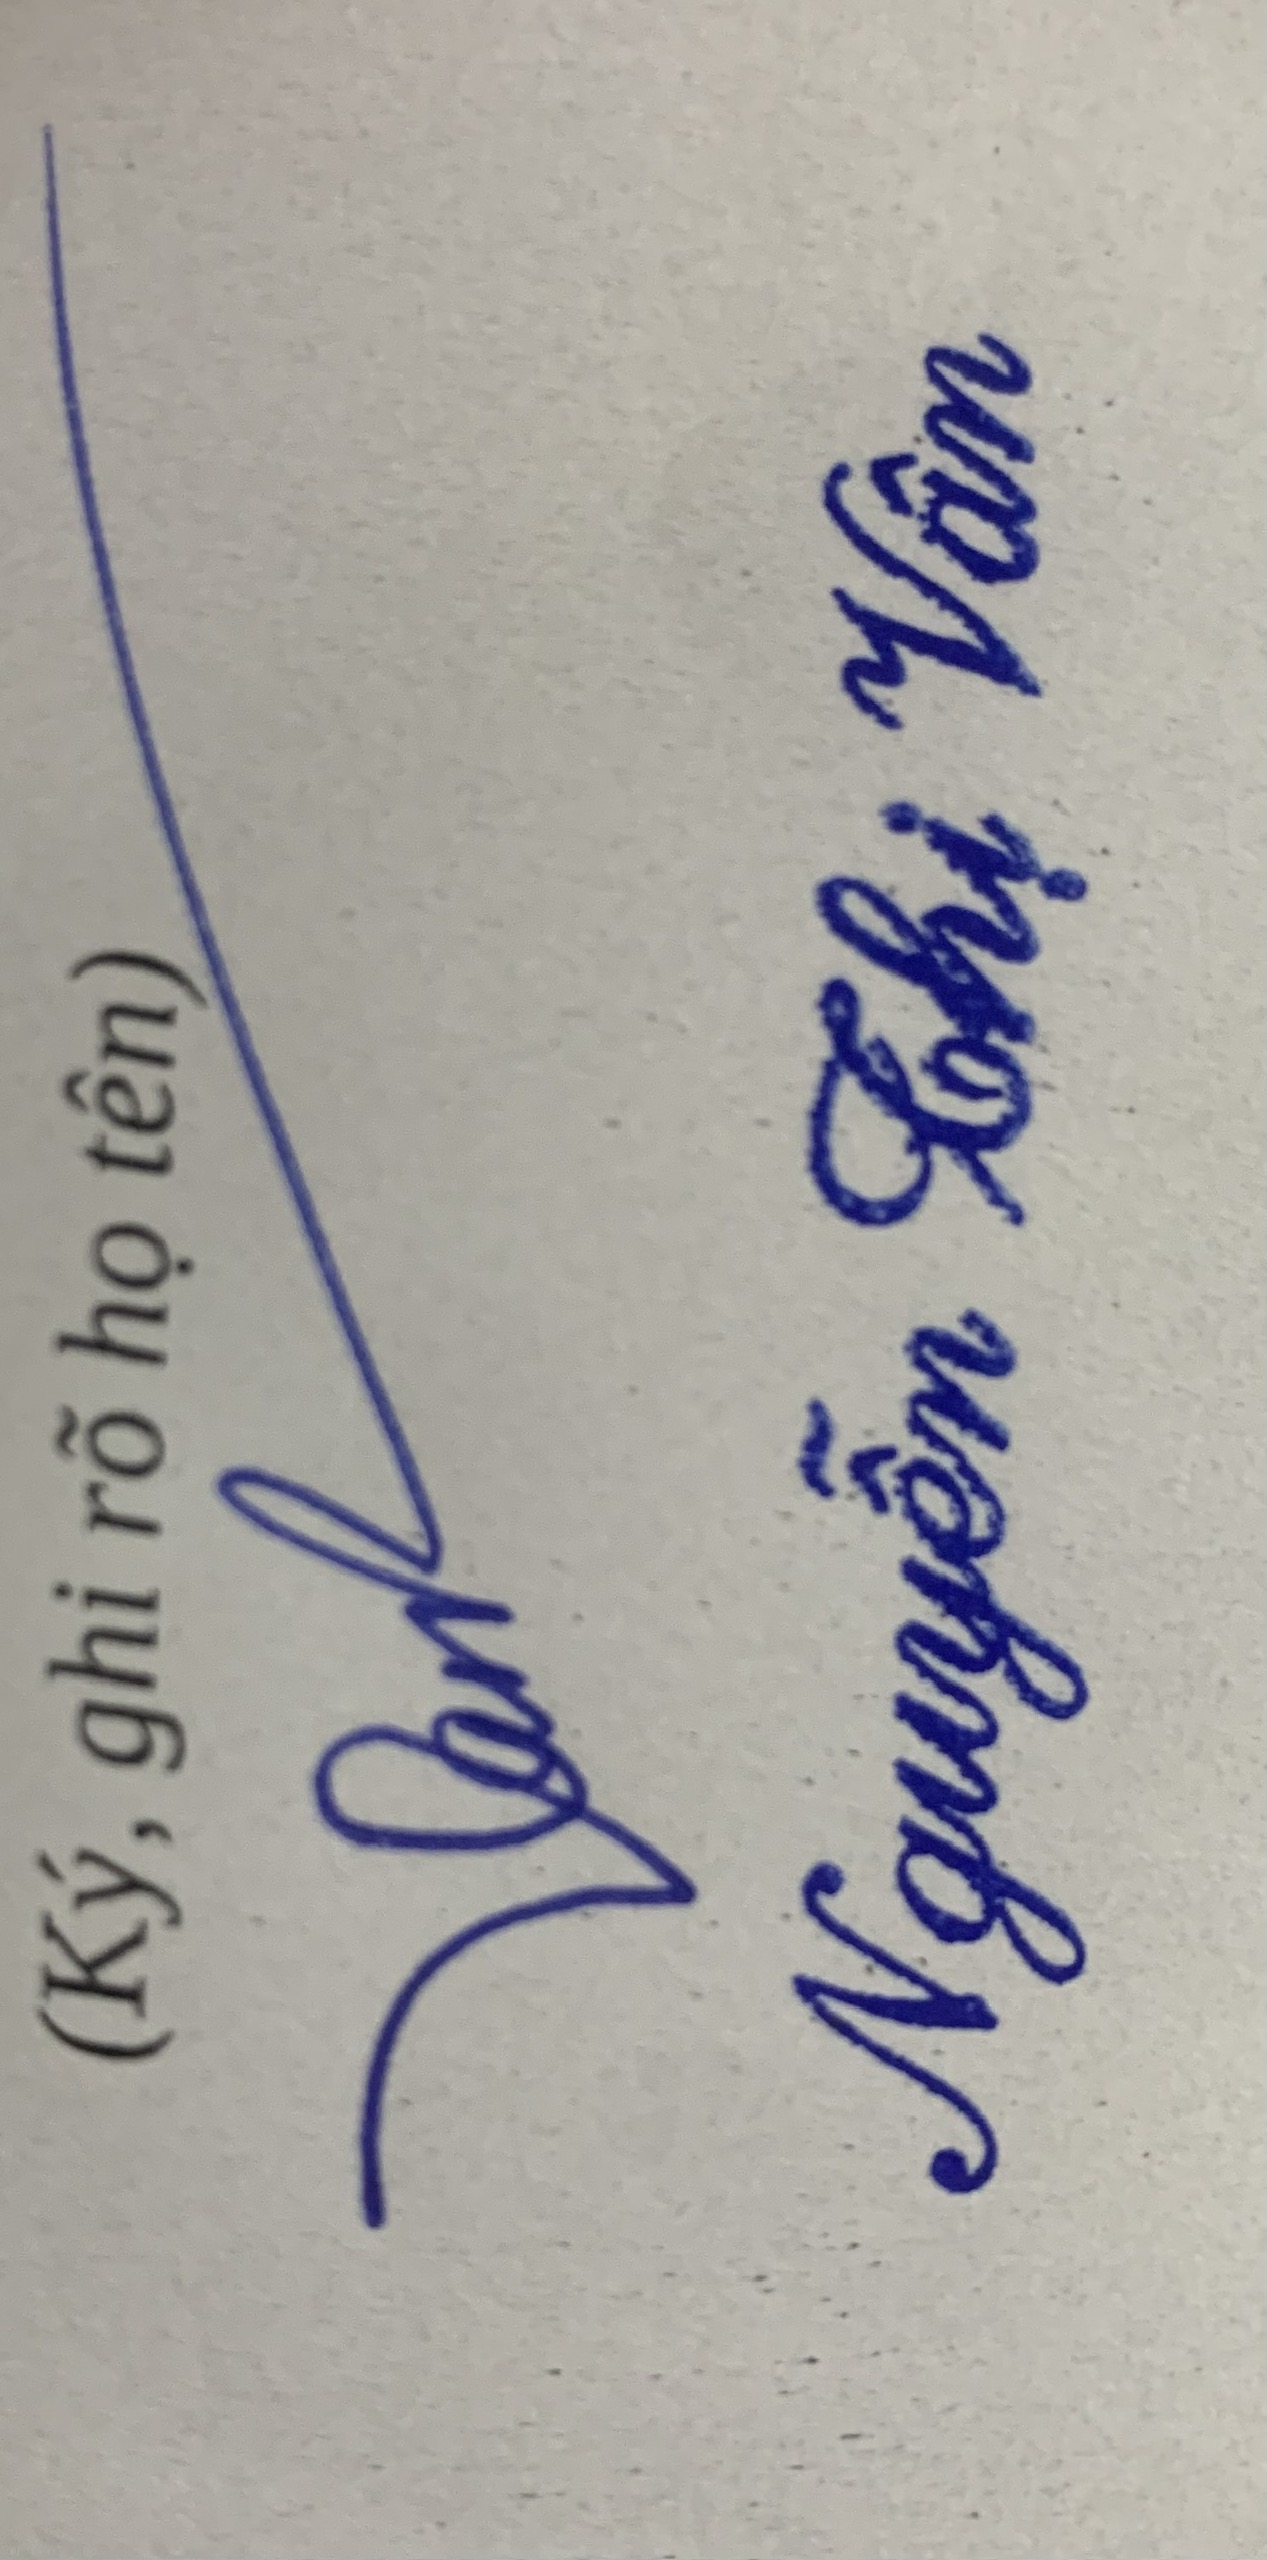 (Ký, ghi rõ họ tên)
Nguyễn Thị Vân